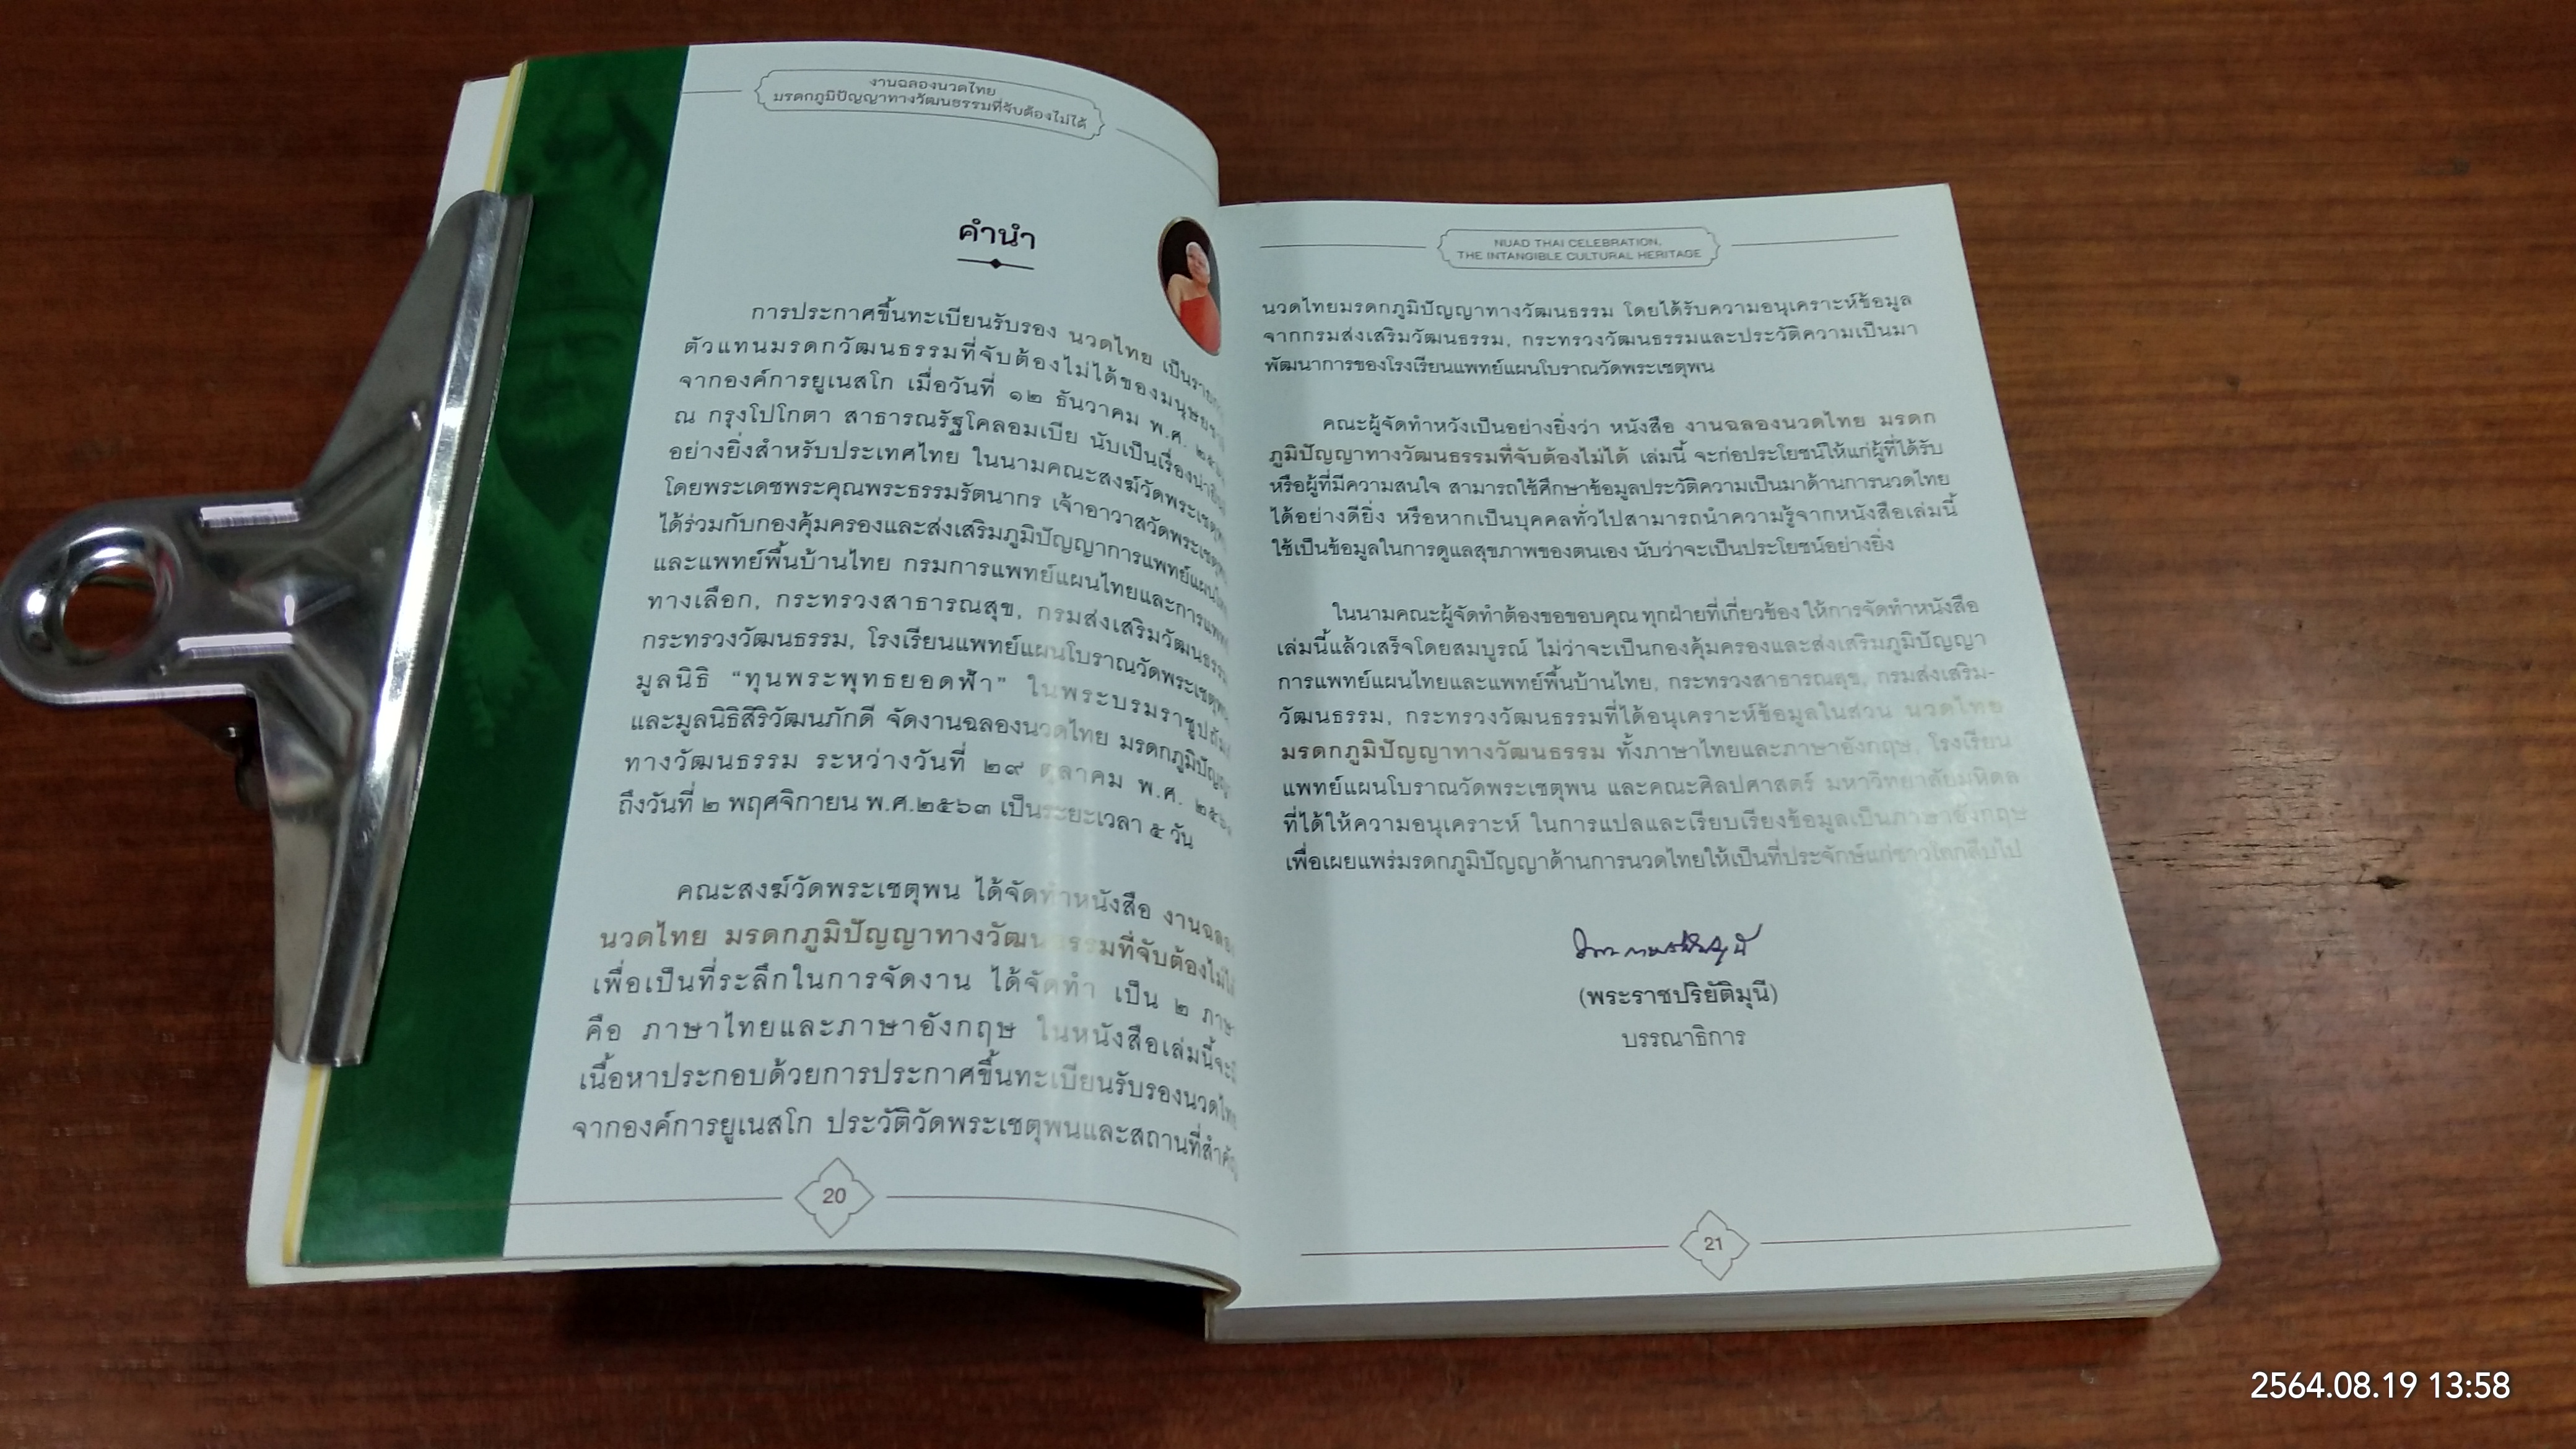 งานฉลองนวดไทย
มรดกภูมิปัญญาทางวัฒนธรรมที่จับต้องไม่ได้
คำนำ
การประกาศขึ้นทะเบียนรับรอง นวดไทย
ตัวแทนมรดกวัฒนธรรมที่จับต้องไม่ได้ของ
จากองค์การยูเนสโก เมื่อวันที่ ๑๒ ธันวาคม พ.ศ.
ณ กรุงโบโกตา สาธารณรัฐโคลอมเบีย นับเป็นเรื่อง
อย่างยิ่งสำหรับประเทศไทย ในนามคณะสงฆ์
โดยพระเดชพระคุณพระธรรมรัตนากร เจ้าอาวาส
ได้ร่วมกับกองคุ้มครองและส่งเสริมภูมิปัญญาการแพทย์
และแพทย์พื้นบ้านไทย กรมการแพทย์แผนไทยและ
ทางเลือก, กระทรวงสาธารณสุข, กรมส่งเสริมวัฒนธรรม
กระทรวงวัฒนธรรม, โรงเรียนแพทย์แผนโบราณ
มูลนิธิ “ทุนพระพุทธยอดฟ้า” ในพระบรมราชูปถัมภ์
และมูลนิธิสิริวัฒนภักดี จัดงานฉลองนวดไทย
ทางวัฒนธรรม ระหว่างวันที่ ๒๙ ตุลาคม พ.ศ.
ถึงวันที่ ๒ พฤศจิกายน พ.ศ.๒๕๖๓ เป็นระยะเวลา ๕ วัน
คณะสงฆ์วัดพระเชตุพน ได้จัดทำหนังสือ
นวดไทย มรดกภูมิปัญญาทางวัฒนธรรมที่จับต้อง
เพื่อเป็นที่ระลึกในการจัดงาน ได้จัดทำ เป็น ๒
คือ ภาษาไทยและภาษาอังกฤษ ในหนังสือเล่มนี้
เนื้อหาประกอบด้วยการประกาศขึ้นทะเบียนรับรอง
จากองค์การยูเนสโก ประวัติวัดพระเชตุพนและสถานที่
20
NUAD THAI CELEBRATION,
THE INTANGIBLE CULTURAL HERITAGE
นวดไทยมรดกภูมิปัญญาทางวัฒนธรรม โดยได้รับความอนุเคราะห์ข้อมูล
จากกรมส่งเสริมวัฒนธรรม, กระทรวงวัฒนธรรมและประวัติความเป็นมา
พัฒนาการของโรงเรียนแพทย์แผนโบราณวัดพระเชตุพน
คณะผู้จัดทำหวังเป็นอย่างยิ่งว่า หนังสือ งานฉลองนวดไทย มรดก
ภูมิปัญญาทางวัฒนธรรมที่จับต้องไม่ได้ เล่มนี้ จะก่อประโยชน์ให้แก่ผู้ที่ได้รับ
หรือผู้ที่มีความสนใจ สามารถใช้ศึกษาข้อมูลประวัติความเป็นมาด้านการนวดไทย
ได้อย่างดียิ่ง หรือหากเป็นบุคคลทั่วไปสามารถนำความรู้จากหนังสือเล่มนี้
ใช้เป็นข้อมูลในการดูแลสุขภาพของตนเอง นับว่าจะเป็นประโยชน์อย่างยิ่ง
ในนามคณะผู้จัดทำต้องขอขอบคุณ ทุกฝ่ายที่เกี่ยวข้อง ให้การจัดทำหนังสือ
เล่มนี้แล้วเสร็จโดยสมบูรณ์ ไม่ว่าจะเป็นกองคุ้มครองและส่งเสริมภูมิปัญญา
การแพทย์แผนไทยและแพทย์พื้นบ้านไทย, กระทรวงสาธารณสุข, กรมส่งเสริม-
วัฒนธรรม, กระทรวงวัฒนธรรมที่ได้อนุเคราะห์ข้อมูลในส่วน นวดไทย
มรดกภูมิปัญญาทางวัฒนธรรม ทั้งภาษาไทยและภาษาอังกฤษ, โรงเรียน
แพทย์แผนโบราณวัดพระเชตุพน และคณะศิลปศาสตร์ มหาวิทยาลัยมหิดล
ที่ได้ให้ความอนุเคราะห์ ในการแปลและเรียบเรียงข้อมูลเป็นภาษาอังกฤษ
เพื่อเผยแพร่มรดกภูมิปัญญาด้านการนวดไทยให้เป็นที่ประจักษ์แก่ชาวโลกสืบไป
(พระราชปริยัติมุนี)
บรรณาธิการ
21
2564.08.19 13:58